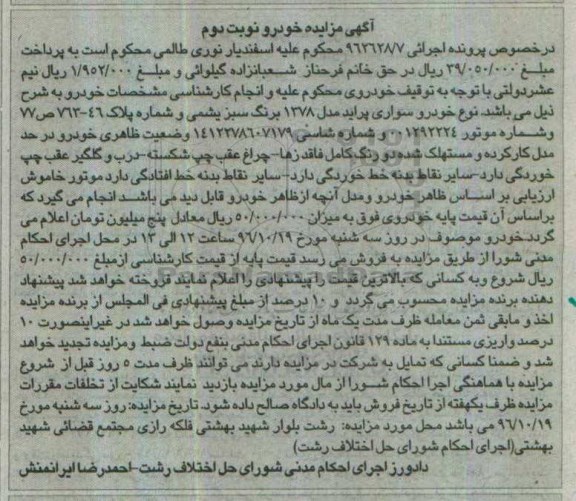 آگهی مزایده خودرو نوبت دوم
درخصوص پرونده اجرائی ۹۶۲۶۲۸/۷ محکوم علیه اسفندیار نوری طالمی محکوم است به پرداخت
مبلغ ۳۹/۰۵۰/۰۰۰ ریال در حق خانم فرحناز شعبانزاده گیلوائی و مبلغ ۱/۹۵۲/۰۰۰ ریال نیم
عشردولتی با توجه به توقیف خودروی محکوم علیه و انجام کارشناسی مشخصات خودرو به شرح
ذیل می باشد. نوع خودرو سواری پراید مدل ۱۳۷۸ برنگ سبز یشمی و شماره پلاک ۴۶-۷۶۳ص۷۷
وشماره موتور ۰۰۱۲۹۲۲۲۴ و شماره شاسی ۱۴۱۲۲۷۸۶۰۷۱۷۹ وضعیت ظاهری خودرو در حد
مدل کارکرده و مستهلک شده دو رنگ کامل فاقد زها-چراغ عقب چپ شکسته-درب و گلگیر عقب چپ
خوردگی دارد-سایر نقاط بدنه خط خوردگی دارد-سایر نقاط بدنه خط افتادگی دارد موتور خاموش
ارزیابی بر اساس ظاهر خودرو و مدل آنچه ازظاهر خودرو قابل دید می باشد انجام می گیرد که
براساس آن قیمت پایه خودروی فوق به میزان ۵۰/۰۰۰/۰۰۰ ریال معادل پنج میلیون تومان اعلام می
گردد.خودرو موصوف در روز سه شنبه مورخ ۹۶/۱۰/۱۹ ساعت ۱۲ الی ۱۳ در محل اجرای احکام
مدنی شورا از طریق مزایده به فروش می رسد قیمت پایه از قیمت کارشناسی ازمبلغ ۵۰/۰۰۰/۰۰۰
ریال شروع وبه کسانی که بالاترین قیمت را پیشنهادی را اعلام نمایند فروخته خواهد شد پیشنهاد
دهنده برنده مزایده محسوب می گردد و ۱۰ درصد از مبلغ پیشنهادی فی المجلس از برنده مزایده
اخذ و مابقی ثمن معامله ظرف مدت یک ماه از تاریخ مزایده وصول خواهد شد در غیراینصورت ۱۰
درصد واریزی مستندا به ماده ۱۲۹ قانون اجرای احکام مدنی بنفع دولت ضبط و مزایده تجدید خواهد
شد و ضمنا کسانی که تمایل به شرکت در مزایده دارند می توانند ظرف مدت ۵ روز قبل از شروع
مزایده با هماهنگی اجرا احکام شورا از مال مورد مزایده بازدید نمایند شکایت از تخلفات مقررات
مزایده ظرف یکهفته از تاریخ فروش باید به دادگاه صالح داده شود. تاریخ مزایده: روز سه شنبه مورخ
۹۶/۱۰/۱۹ می باشد محل مورد مزایده: رشت بلوار شهید بهشتی فلکه رازی مجتمع قضائی شهید
بهشتی(اجرای احکام شورای حل اختلاف رشت)
دادورز اجرای احکام مدنی شورای حل اختلاف رشت-احمدرضا ایرانمنش